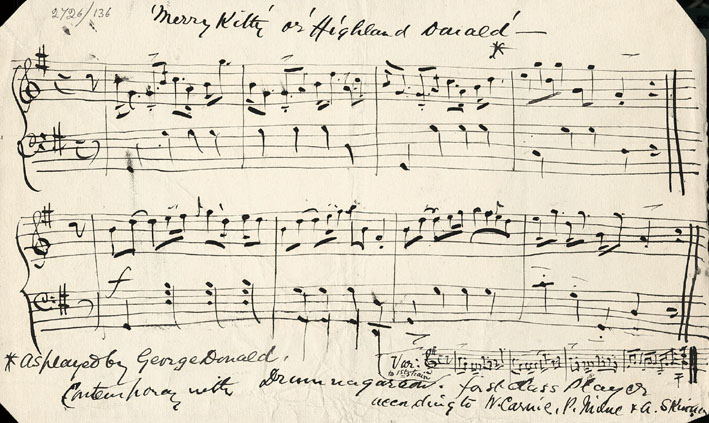 2726/136
'Merry Kitty' or 'Highland Donald' —
*
f
Var:
to 1st strain
* As played by George Donald.
Contemporary with Drumnagarrow. first class Player
according to W. Carnie, P. Milne & A. Skinner